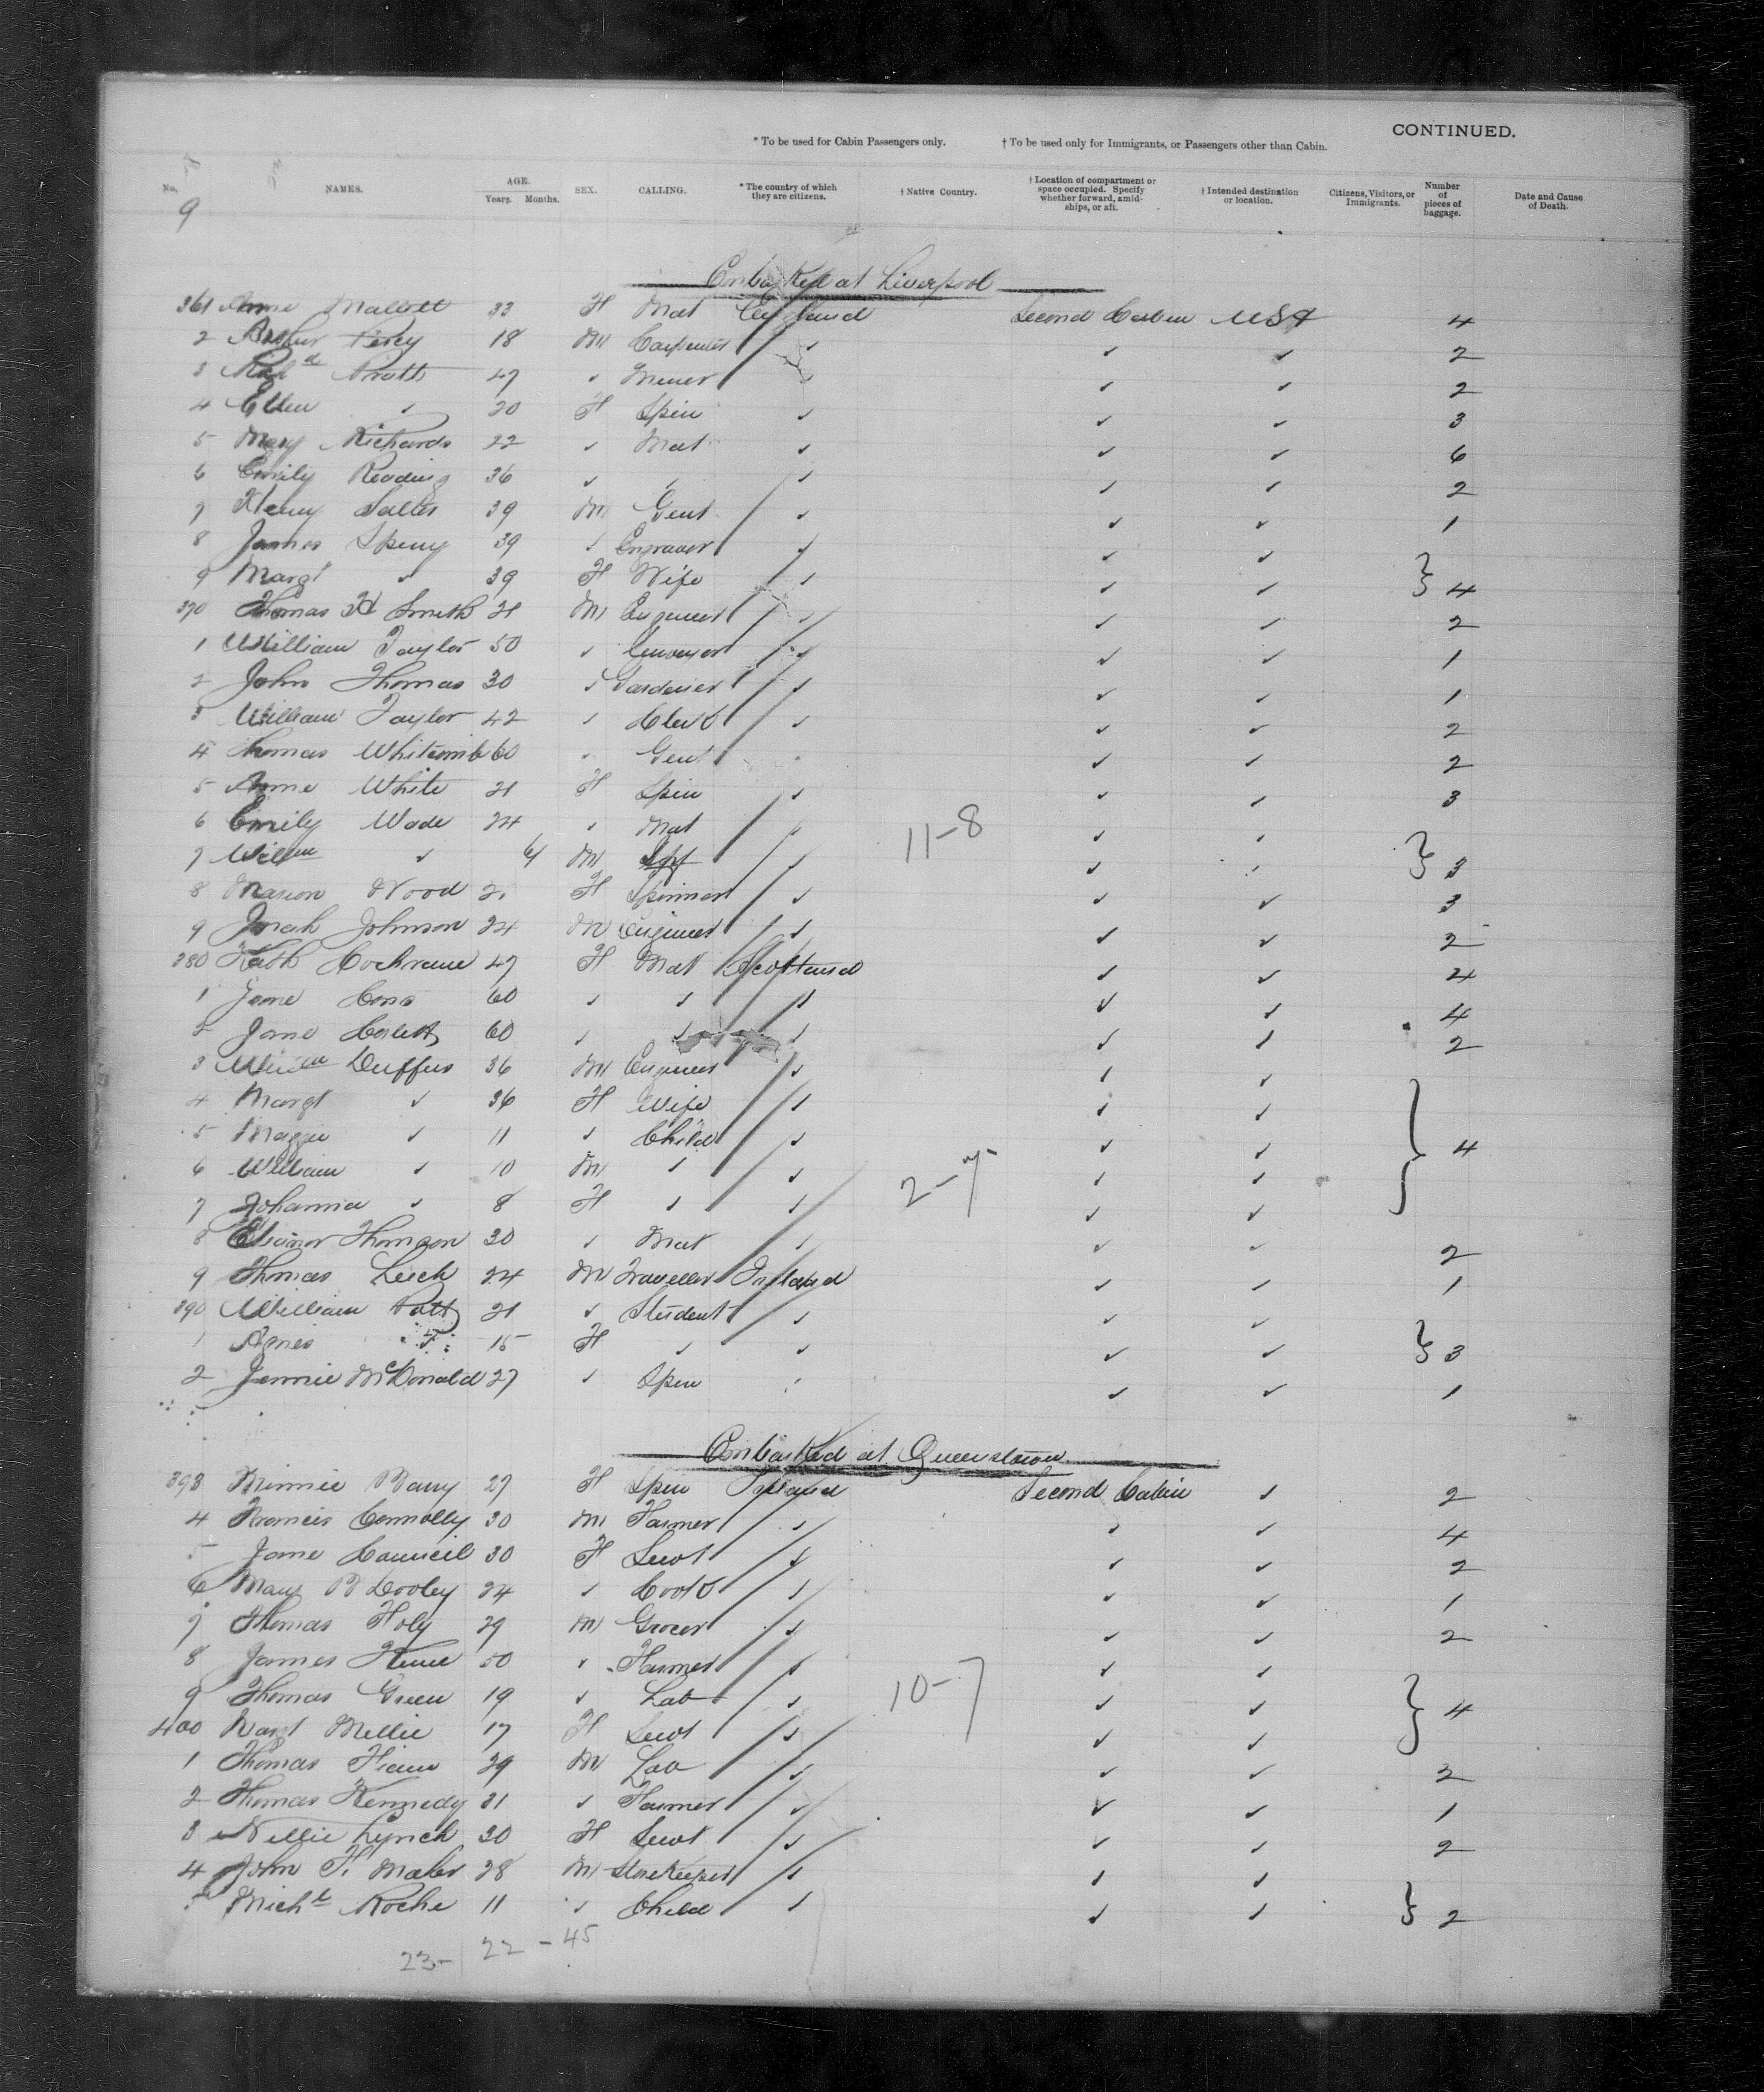 CONTINUED.
* To be used for Cabin Passengers only. † To be used only for Immigrants, or Passengers other than Cabin.
No. NAMES. AGE. Years. Months. SEX. CALLING. * The country of which they are citizens. † Native Country. † Location of compartment or space occupied. Specify whether forward, amid-ships, or aft. † Intended destination or location. Citizens, Visitors, or Immigrants. Number of pieces of baggage. Date and Cause of Death.
9
Embarked at Liverpool
361 Anne Mallett 33 F Mat England Second Cabin USA 4
2 Arthur Percy 18 M Carpenter ✓ ✓ ✓ 2
3 Richd Pratt 47 ✓ Miner ✓ ✓ ✓ 2
4 Ellen ✓ 20 F Spin ✓ ✓ ✓ 3
5 Mary Richards 22 ✓ Mat ✓ ✓ ✓ 6
6 Emily Reading 36 ✓ ✓ ✓ ✓ ✓ 2
7 Henry Salter 39 M Gent ✓ ✓ ✓ 1
8 James Spevy 39 ✓ Engraver ✓ ✓ ✓
9 Margt ✓ 39 F Wife ✓ ✓ ✓ } 4
370 Thomas H Smith 21 M Engineer ✓ ✓ ✓ 2
1 William Taylor 50 ✓ ✓ ✓ ✓ 1
2 John Thomas 30 ✓ Gardener ✓ ✓ ✓ 1
3 William Taylor 42 ✓ Clerk ✓ ✓ ✓ 2
4 Thomas Whitcomb 60 ✓ Gent ✓ ✓ ✓ 2
5 Anne White 21 F Spin ✓ ✓ ✓ 3
6 Emily Wade 24 ✓ Mat ✓ 11-8 ✓ ✓
7 Willm ✓ M Inf ✓ ✓ ✓ } 3
8 Marion Wood F Spinner ✓ ✓ ✓ 3
9 Johnson 24 M Engineer ✓ ✓ ✓ 2
380 Kath Cochrane 47 F Mat Scotland ✓ ✓ 4
1 Jane 60 ✓ ✓ ✓ ✓ ✓ 4
2 Jane 60 ✓ ✓ ✓ ✓ ✓ 2
3 Willm Duffus 36 M Engineer ✓ ✓ ✓
4 Margt ✓ 36 F Wife ✓ ✓ ✓
5 Maggie ✓ 11 ✓ Child ✓ ✓ ✓ } 4
6 William ✓ 10 M ✓ ✓ 2-7 ✓ ✓
7 Johanna ✓ 8 F ✓ ✓ ✓ ✓
8 Eleanor Thomson 30 ✓ Mat ✓ ✓ ✓ 2
9 Thomas Leech 24 M Traveller Ireland ✓ ✓ 1
390 William Patt 21 ✓ Student ✓ ✓ ✓
1 Agnes ✓ 15 F ✓ ✓ ✓ ✓ } 3
2 Jennie McDonald 27 ✓ Spin ✓ ✓ ✓ 1
Embarked at Queenstown
393 Minnie Barry 27 F Spin Ireland Second Cabin ✓ 2
4 Francis Connolly 30 M Farmer ✓ ✓ ✓ 4
5 Jane Council 30 F Servt ✓ ✓ ✓ 2
6 Mary B Dooley 24 ✓ Cook ✓ ✓ ✓ 1
7 Thomas Foly 29 M Grocer ✓ ✓ ✓ 2
8 James 50 ✓ Farmer ✓ ✓ ✓
9 Thomas Green 19 ✓ Lab ✓ 10-7 ✓ ✓ } 4
400 Margt Mellie 17 F Servt ✓ ✓ ✓
1 Thomas 29 M Lab ✓ ✓ ✓ 2
2 Thomas Kennedy 31 ✓ Farmer ✓ ✓ ✓ 1
3 Nellie Lynch 30 F Servt ✓ ✓ ✓ 2
4 John F. Maher 28 M Storekeeper ✓ ✓ ✓
5 Michl Roche 11 ✓ Child ✓ ✓ ✓ } 2
23- 22 - 45